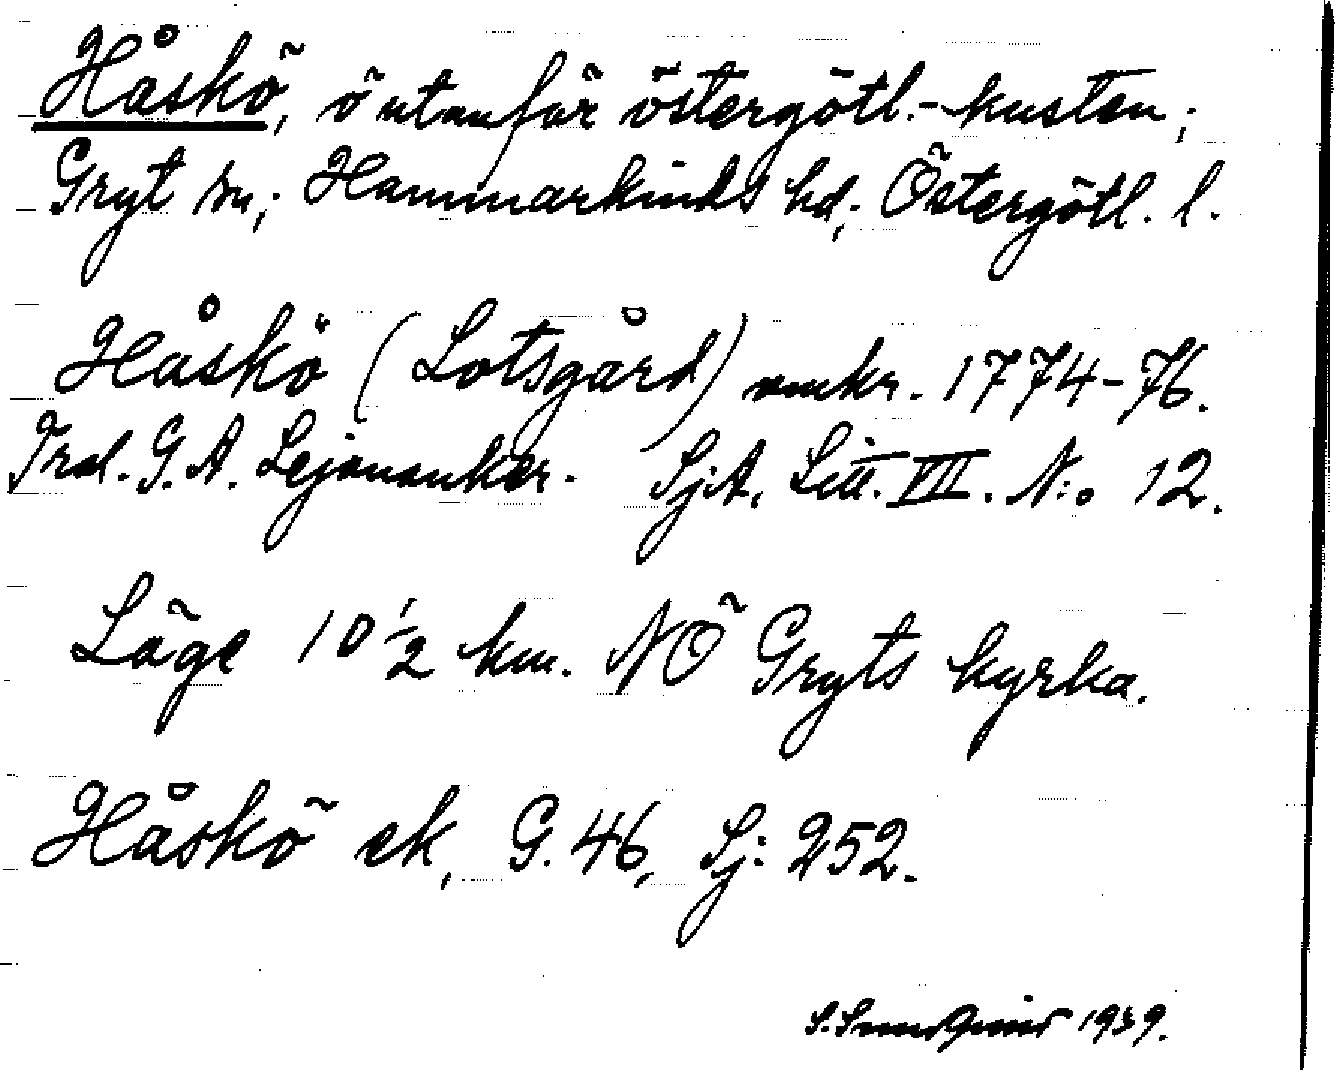 Håskö, ö utanför östergötl.-kusten;
Gryt sn; Hammarkinds hd; Östergötl. l.
Håskö (Lotsgård) omkr. 1774-76.
Trol. G. A. Lejonanker. SjA. Litt. VII. N:o 12.
Läge 10 ½ km. NÖ Gryts kyrka.
Håskö ek, G. 46, Sj: 252.
S. Sundquist 1939.